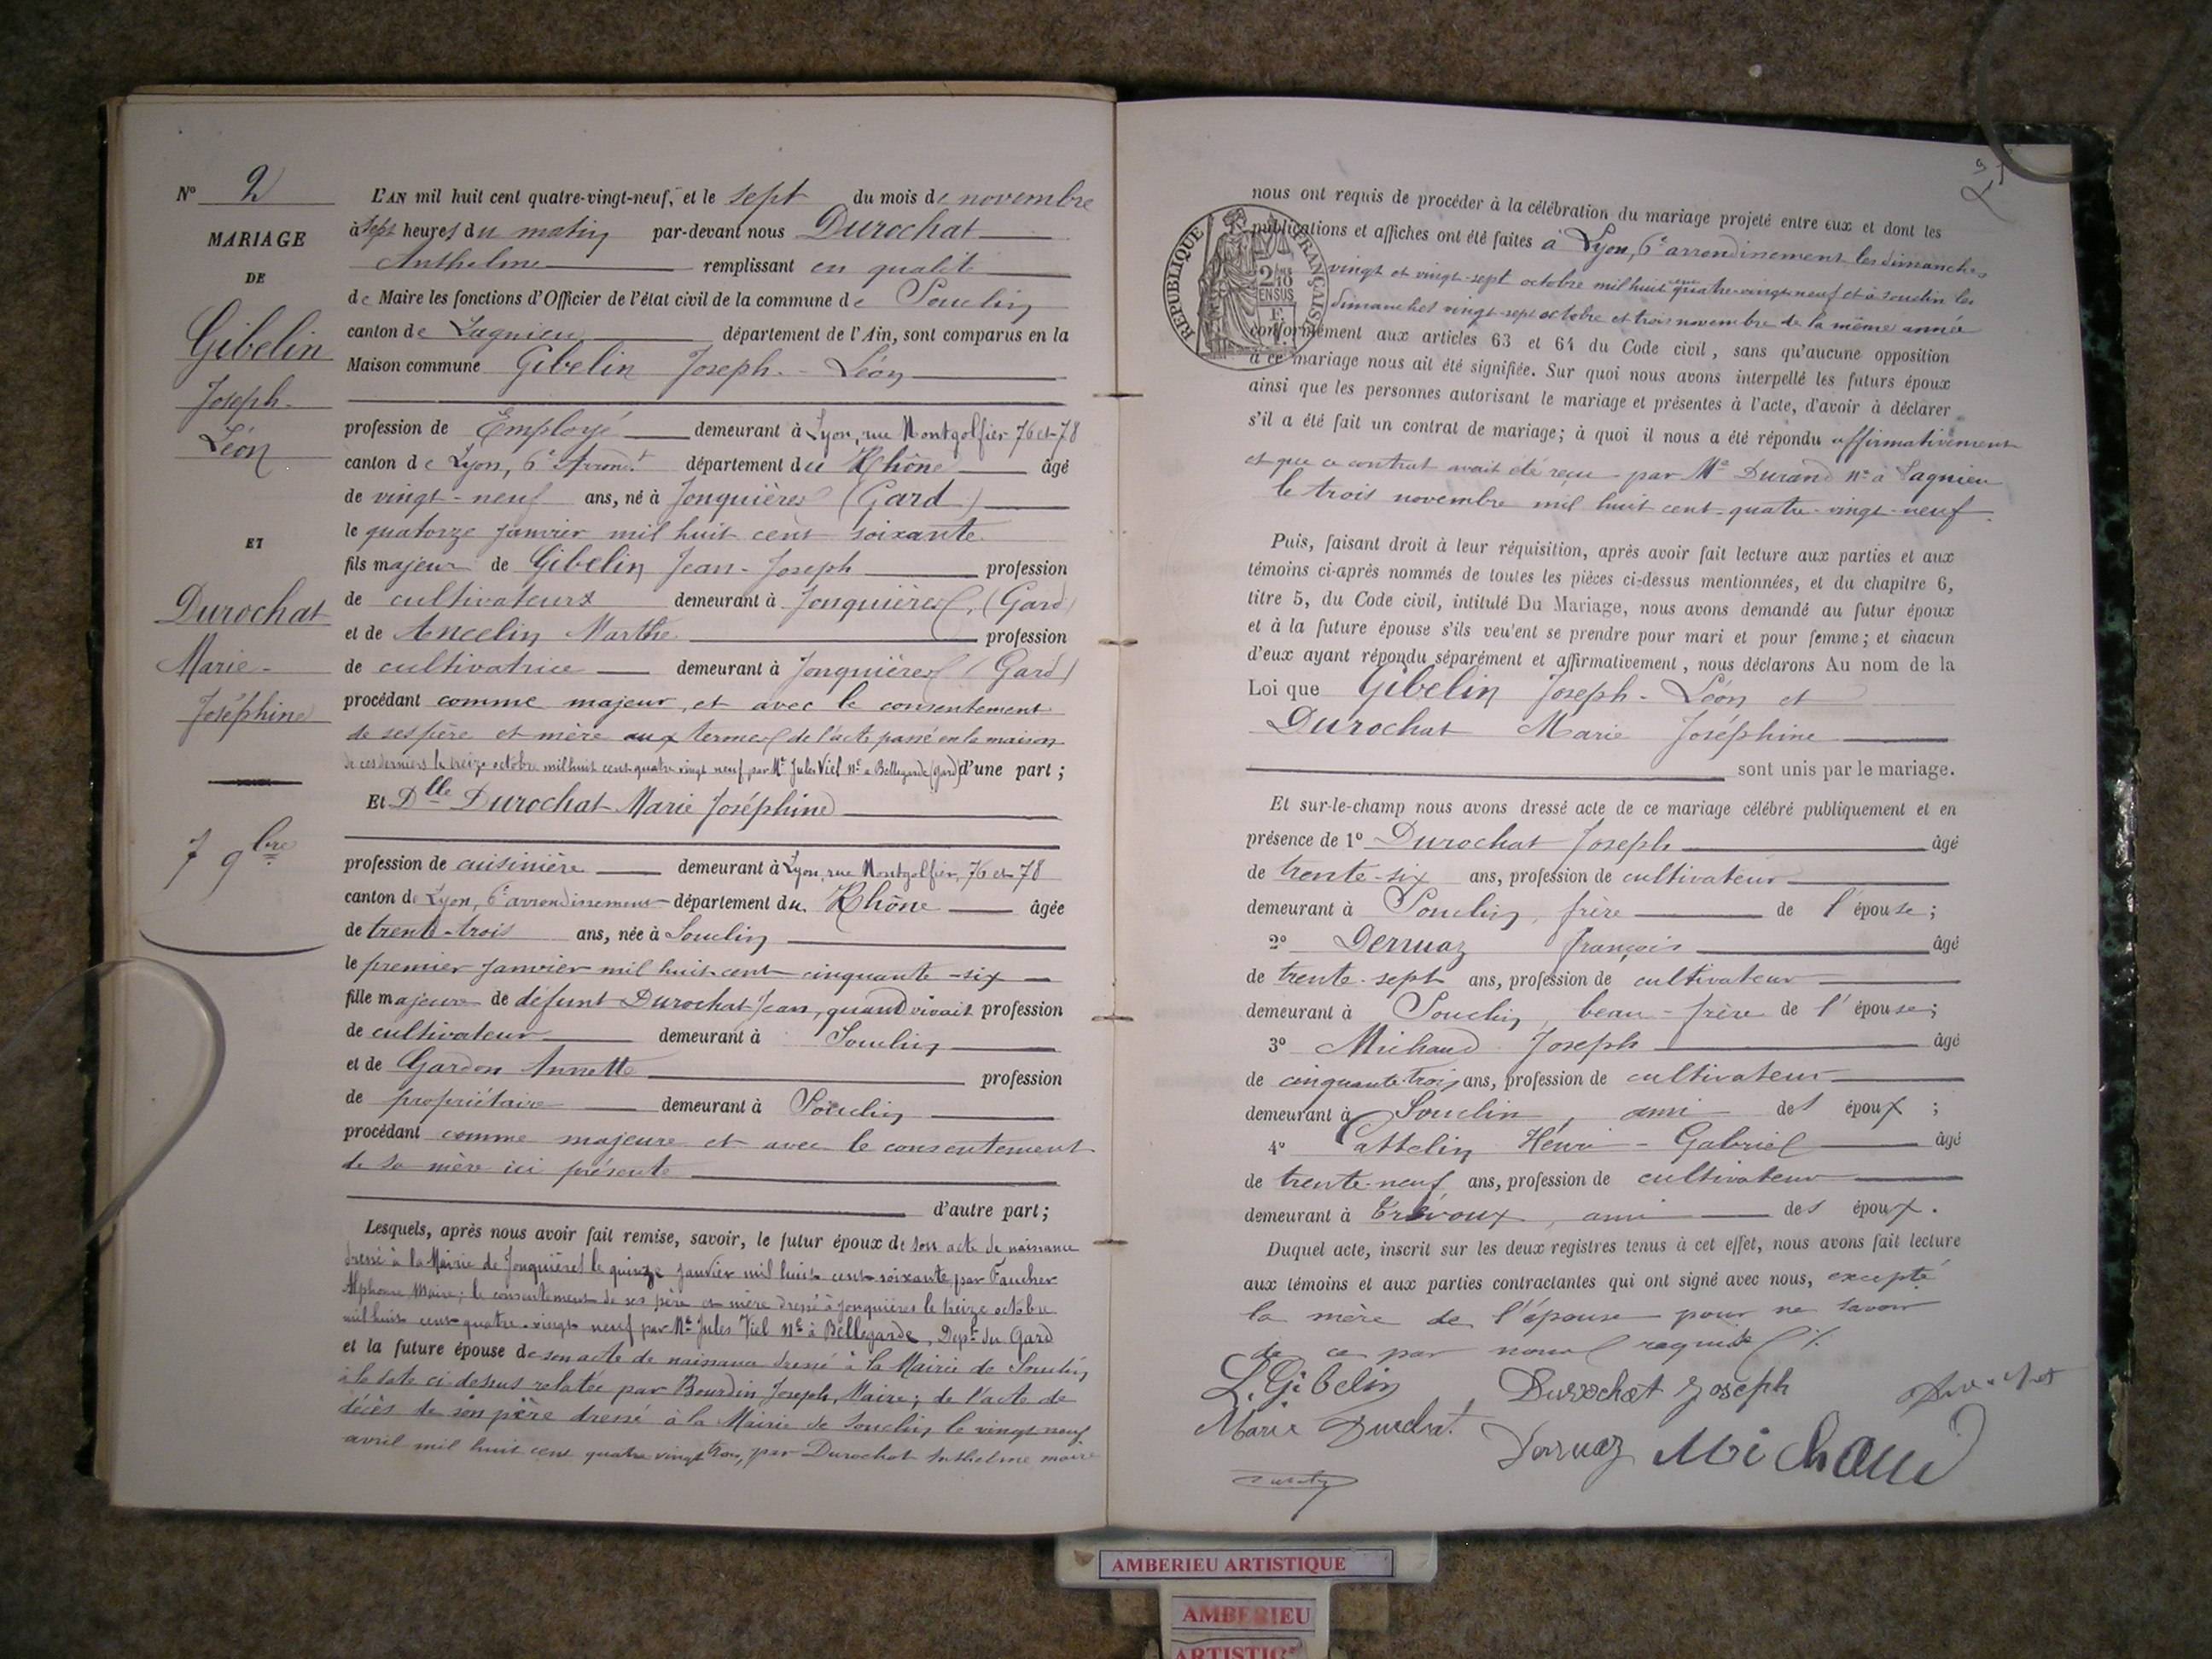 N° 2
MARIAGE
DE
Gibelin
Joseph
Léon
ET
Durochat
Marie
Joséphine
7 9bre
L'AN mil huit cent quatre-vingt-neuf, et le sept du mois de novembre
à sept heures du matin par-devant nous Durochat
Anthelme remplissant en qualité
de Maire les fonctions d'Officier de l'état civil de la commune de Souclin
canton de Lagnieu département de l'Ain, sont comparus en la
Maison commune Gibelin Joseph-Léon
profession de Employé demeurant à Lyon, rue Montgolfier 76 et 78
canton de Lyon, 6e Arrondt département du Rhône âgé
de vingt-neuf ans, né à Jonquières (Gard)
le quatorze janvier mil huit cent soixante
fils majeur de Gibelin Jean-Joseph profession
de cultivateur demeurant à Jonquières, (Gard)
et de Ancelin Marthe profession
de cultivatrice demeurant à Jonquières (Gard)
procédant comme majeur, et avec le consentement
de ses père et mère aux termes de l'acte passé en la maison
de ces derniers le treize octobre mil huit cent quatre vingt neuf par Me Jules Viel Ne à Bellegarde (Gard) d'une part ;
Et Dlle Durochat Marie Joséphine
profession de cuisinière demeurant à Lyon, rue Montgolfier, 76 et 78
canton de Lyon, 6e arrondissement département du Rhône âgée
de trente-trois ans, née à Souclin
le premier janvier mil huit cent cinquante-six
fille majeure de défunt Durochat Jean, quand vivait profession
de cultivateur demeurant à Souclin
et de Gardon Annette profession
de propriétaire demeurant à Souclin
procédant comme majeure et avec le consentement
de sa mère ici présente
d'autre part ;
Lesquels, après nous avoir fait remise, savoir, le futur époux de son acte de naissance
dressé à la Mairie de Jonquières le quinze janvier mil huit cent soixante par Faucher
Alphonse Maire ; le consentement de ses père et mère dressé à Jonquières le treize octobre
mil huit cent quatre-vingt neuf par Me Jules Viel Ne à Bellegarde, Dept du Gard
et la future épouse de son acte de naissance dressé à la Mairie de Souclin
à la date ci dessus relatée par Bourdin Joseph, Maire ; de l'acte de
décès de son père dressé à la Mairie de Souclin le vingt neuf
avril mil huit cent quatre vingt trois, par Durochat Anthelme maire
REPUBLIQUE FRANÇAISE
2/10 EN SUS
nous ont requis de procéder à la célébration du mariage projeté entre eux et dont les
publications et affiches ont été faites à Lyon, 6e arrondissement les dimanches
vingt et vingt-sept octobre mil huit cent quatre-vingt-neuf et à Souclin les
dimanches vingt-sept octobre et trois novembre de la même année
conformément aux articles 63 et 64 du Code civil, sans qu'aucune opposition
à ce mariage nous ait été signifiée. Sur quoi nous avons interpellé les futurs époux
ainsi que les personnes autorisant le mariage et présentes à l'acte, d'avoir à déclarer
s'il a été fait un contrat de mariage ; à quoi il nous a été répondu affirmativement
et que ce contrat avait été reçu par Me Durand Ne à Lagnieu
le trois novembre mil huit cent-quatre-vingt-neuf.
Puis, faisant droit à leur réquisition, après avoir fait lecture aux parties et aux
témoins ci-après nommés de toutes les pièces ci-dessus mentionnées, et du chapitre 6,
titre 5, du Code civil, intitulé Du Mariage, nous avons demandé au futur époux
et à la future épouse s'ils veulent se prendre pour mari et pour femme ; et chacun
d'eux ayant répondu séparément et affirmativement, nous déclarons Au nom de la
Loi que Gibelin Joseph-Léon et
Durochat Marie Joséphine
sont unis par le mariage.
Et sur-le-champ nous avons dressé acte de ce mariage célébré publiquement et en
présence de 1° Durochat Joseph âgé
de trente-six ans, profession de cultivateur
demeurant à Souclin, frère de l'épouse ;
2° Dervaz françois âgé
de trente-sept ans, profession de cultivateur
demeurant à Souclin, beau-frère de l'épouse ;
3° Michaud Joseph âgé
de cinquante-trois ans, profession de cultivateur
demeurant à Souclin, ami des époux ;
4° Cattelin Henri-Gabriel âgé
de trente-neuf ans, profession de cultivateur
demeurant à Trévoux, ami des époux.
Duquel acte, inscrit sur les deux registres tenus à cet effet, nous avons fait lecture
aux témoins et aux parties contractantes qui ont signé avec nous, excepté
la mère de l'épouse pour ne savoir
de ce par nous requise ./.
L. Gibelin Durochat Joseph
Marie Durochat Dervaz Michaud
AMBERIEU ARTISTIQUE
AMBERIEU
ARTISTIQ